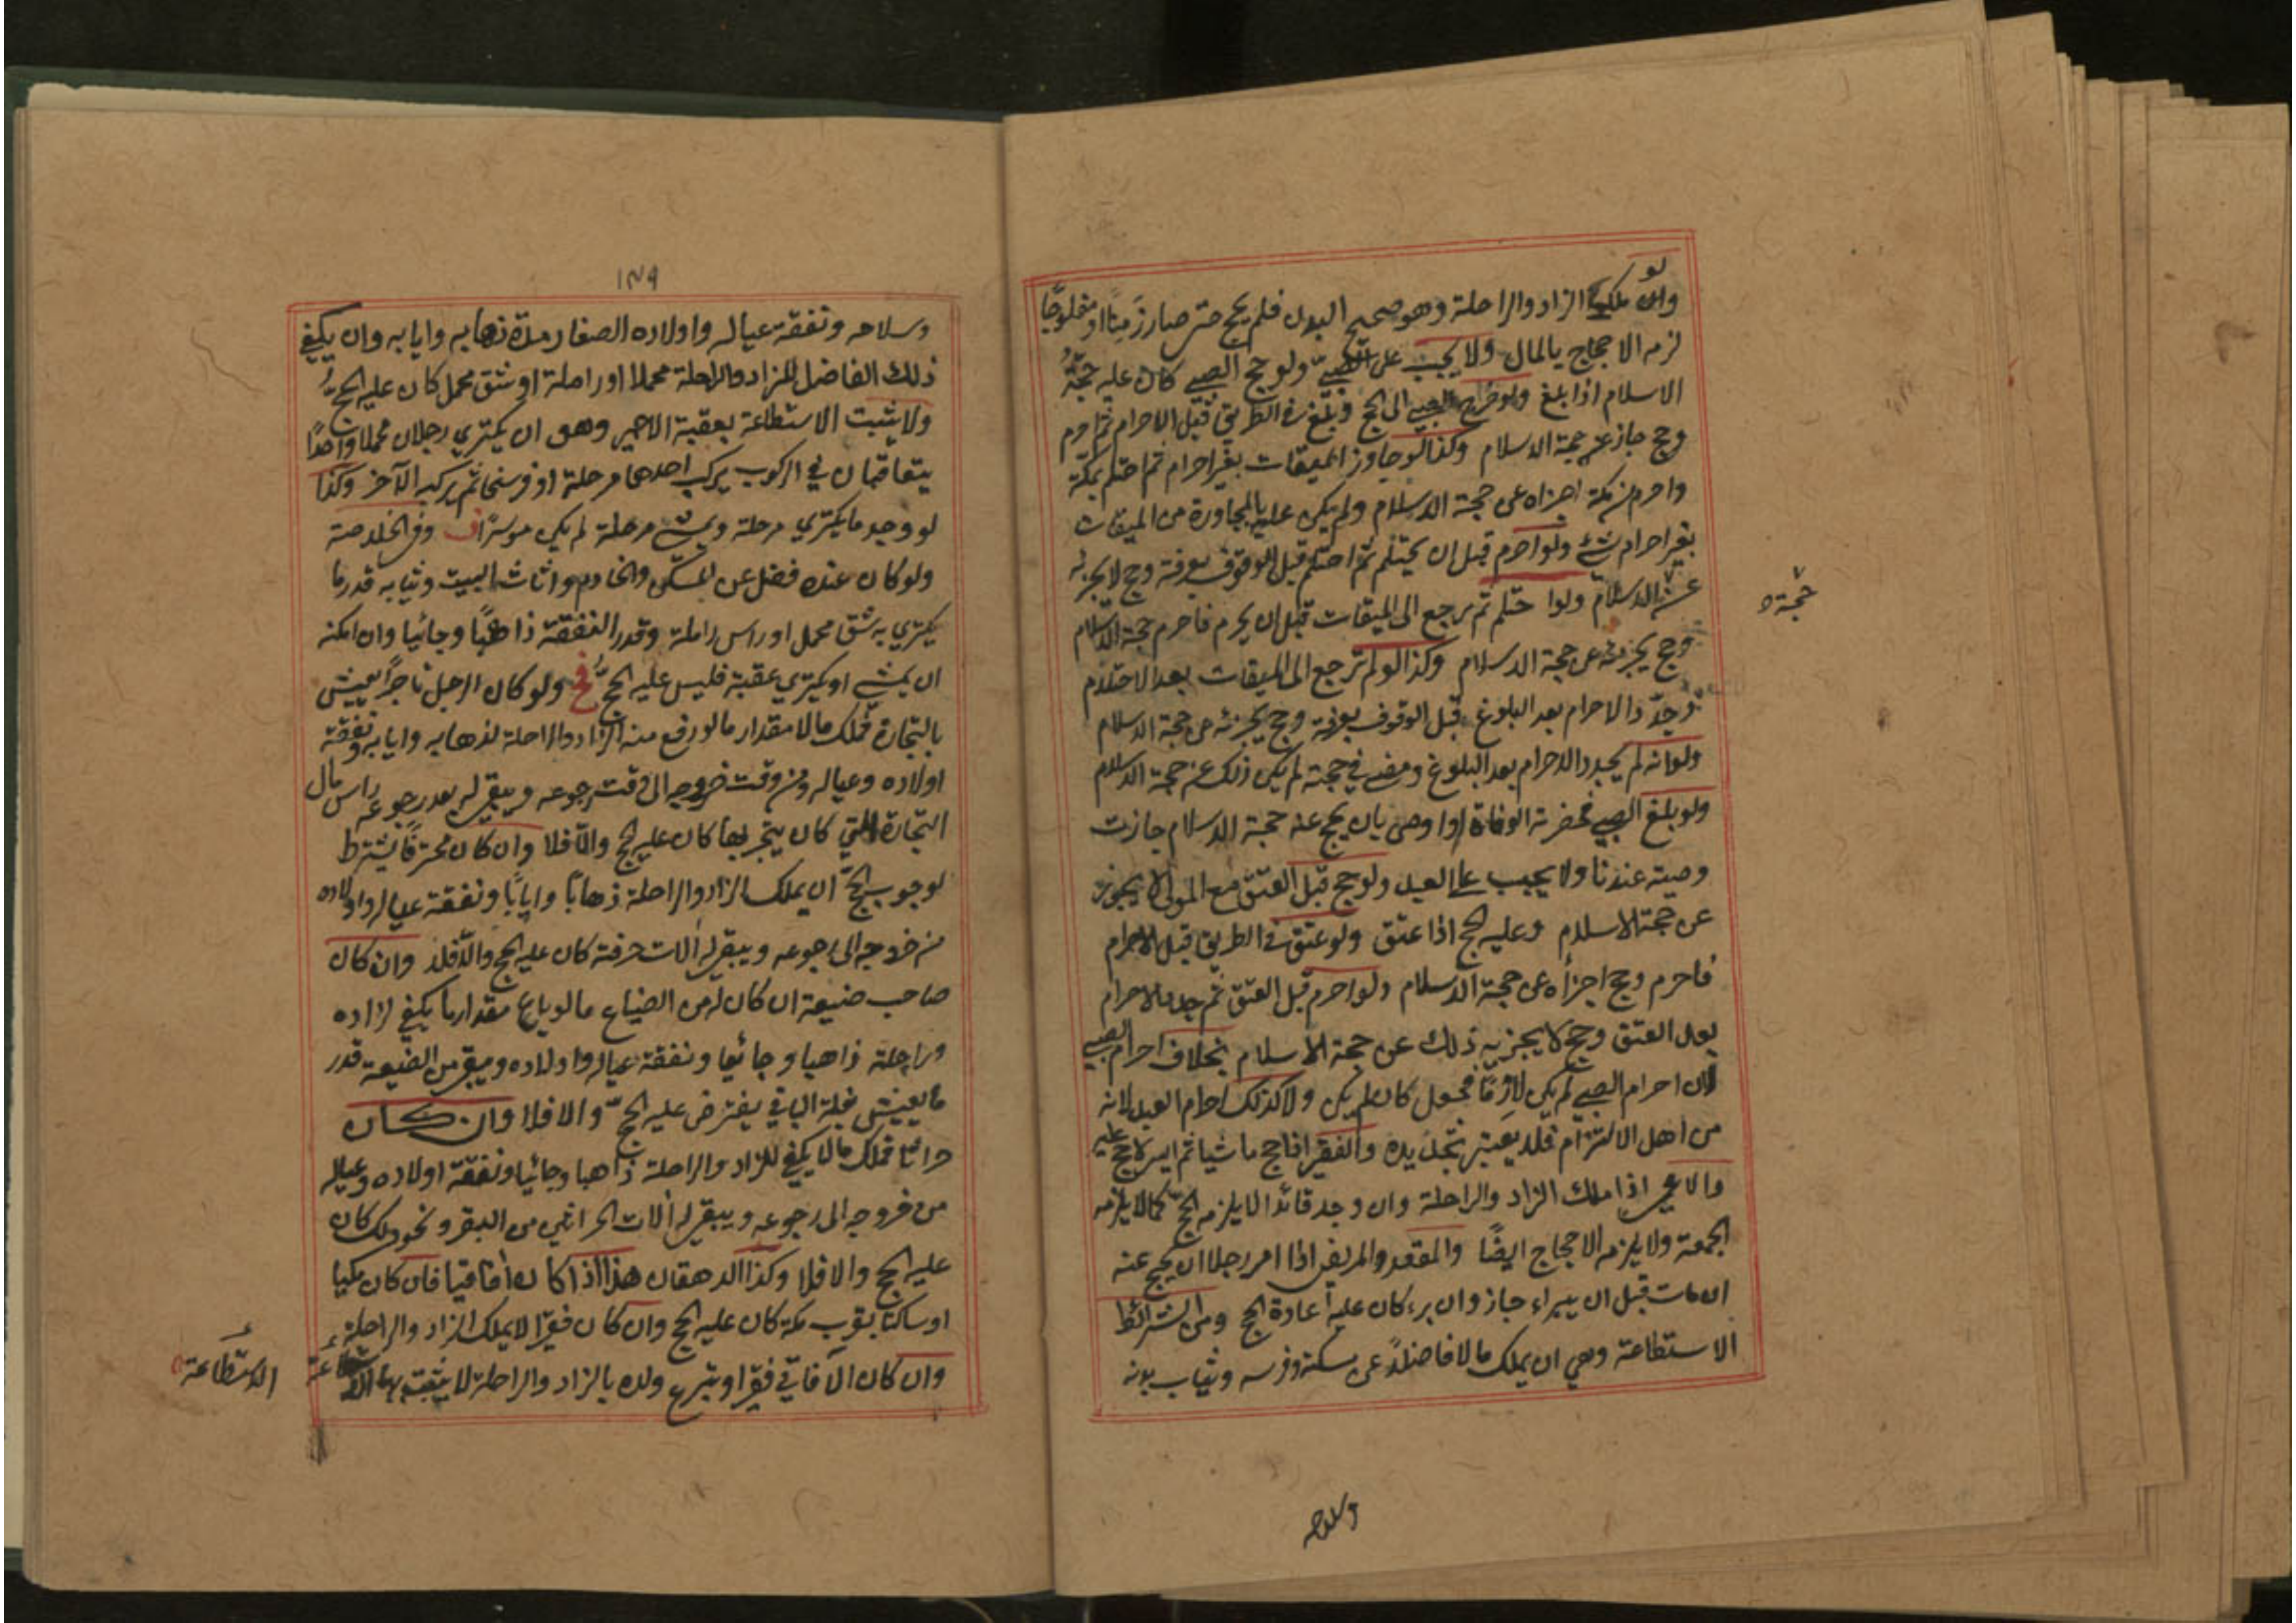 ولو ملك الزاد والراحلة وهو صحيح البدن فلم يحج حتى صار زمنا او مفلوجًا
لزمه الاحجاج بالمال ولا يجب على الصبيّ ولو حج الصبي كان عليه حجّةُ
الاسلام اذا بلغ ولو خرج الصبي الى الحج وبلغ في الطريق قبل الاحرام ثم احرم
وحج جاز عن حجة الاسلام وكذا لو جاوز الميقات بغير احرام ثم احتلم بمكة
واحرم من مكة اجزاه عن حجة الاسلام ولم يكن عليه بالمجاوزة من الميقات
بغير احرام شئ ولو احرم قبل ان يحتلم ثم احتلم قبل الوقوف بعرفة وحج لا يجزئه
عن الاسلام ولو احتلم ثم رجع الى الميقات قبل ان يحرم فاحرم حجة الاسلام
حجة
وحج يجزئه عن حجة الاسلام وكذا لو لم يرجع الى الميقات بعد الاحتلام
وجدّد الاحرام بعد البلوغ قبل الوقوف بعرفة وحج يجزئه عن حجة الاسلام
ولو انه لم يجدد الاحرام بعد البلوغ ومضى في حجته لم يكن ذلك عن حجة الاسلام
ولو بلغ الصبي فحضرته الوفاة واوصى بان يحج عنه حجة الاسلام جازت
وصيته عندنا ولا يجب على العبد ولو حج قبل العتق مع المولى لا يجوز
عن حجة الاسلام وعليه الحج اذا عتق ولو عتق في الطريق قبل الاحرام
فاحرم وحج اجزأه عن حجة الاسلام ولو احرم قبل العتق ثم جدد الاحرام
بعد العتق وحج لا يجزيه ذلك عن حجة الاسلام بخلاف احرام الصبي
لان احرام الصبي لم يكن لازمًا فجعل كان لم يكن ولا كذلك احرام العبد لانه
من اهل الالتزام فلا يعتبر تجديده والفقير اذا حج ماشيا ثم ايسر لا حج عليه
والاعمى اذا ملك الزاد والراحلة وان وجد قائدا لا يلزمه الحجّ كما لا يلزمه
الجمعة ولا يلزمه الاحجاج ايضًا والمقعد والمريض اذا امر رجلا ان يحج عنه
ان مات قبل ان يبراء جاز وان برء كان عليه اعادة الحج ومن الشرائط
الاستطاعة وهي ان يملك مالا فاضلاً عن مسكنه وفرسه وثياب بدنه
وسلاحه
١٧٩
وسلاحه ونفقة عياله واولاده الصغار مدة ذهابه وايابه وان يكفي
ذلك الفاضل للزاد والراحلة محملا او راحلة او شق محمل كان عليه الحجُّ
ولا يثبت الاستطاعة بعقبة الاجير وهو ان يكتري رجلان محملا واحدًا
يتعاقبان في الركوب يركب احدهما مرحلة او فرسخا ثم يركبه الآخر وكذا
لو وجد ما يكتري مرحلة ويمشي مرحلة لم يكن موسرًا وفي الخلاصة
ولو كان عنده فضل عن المسكن والخادم واثاث البيت وثيابه قدر ما
يكتري به شق محمل او راس راحلة وقدر النفقة ذاهبًا وجائيا وان امكنه
ان يمشي او يكتري عقبة فليس عليه الحجّ ولو كان الرجل تاجرًا يعيش
بالتجارة فملك مالا مقدار ما لو رفع منه الزاد والراحلة لذهابه وايابه ونفقة
اولاده وعياله من وقت خروجه الى وقت رجوعه ويبقى له بعد رجوعه راس مال
التجارة التي كان يتجر بها كان عليه الحج والّا فلا وان كان محترفًا يشترط
لوجوب الحجّ ان يملك الزاد والراحلة ذهابًا وايابًا ونفقة عياله واولاده
من خروجه الى رجوعه ويبقى له آلات حرفته كان عليه الحج والّا فلا وان كان
صاحب ضيعة ان كان له من الضياع ما لو باع مقدار ما يكفي لزاده
وراحلة ذاهبا وجائيا ونفقة عياله واولاده ويبقى من الضيعة قدر
ما يعيش بغلة الباقي يفترض عليه الحجّ والا فلا وان كان
حراثا فملك مالا يكفي للزاد والراحلة ذاهبا وجائيا ونفقة اولاده وعياله
من خروجه الى رجوعه ويبقى له آلات الحراثين من البقر ونحو ذلك كان
عليه الحج والا فلا وكذا الدهقان هذا اذا كان آفاقيا فان كان مكيا
او ساكنا بقرب مكة كان عليه الحج وان كان فقيرا لا يملك الزاد والراحلة
وان كان الآفاقي فقيرا وتبرع ولده بالزاد والراحلة لا يثبت بها
الاستطاعة